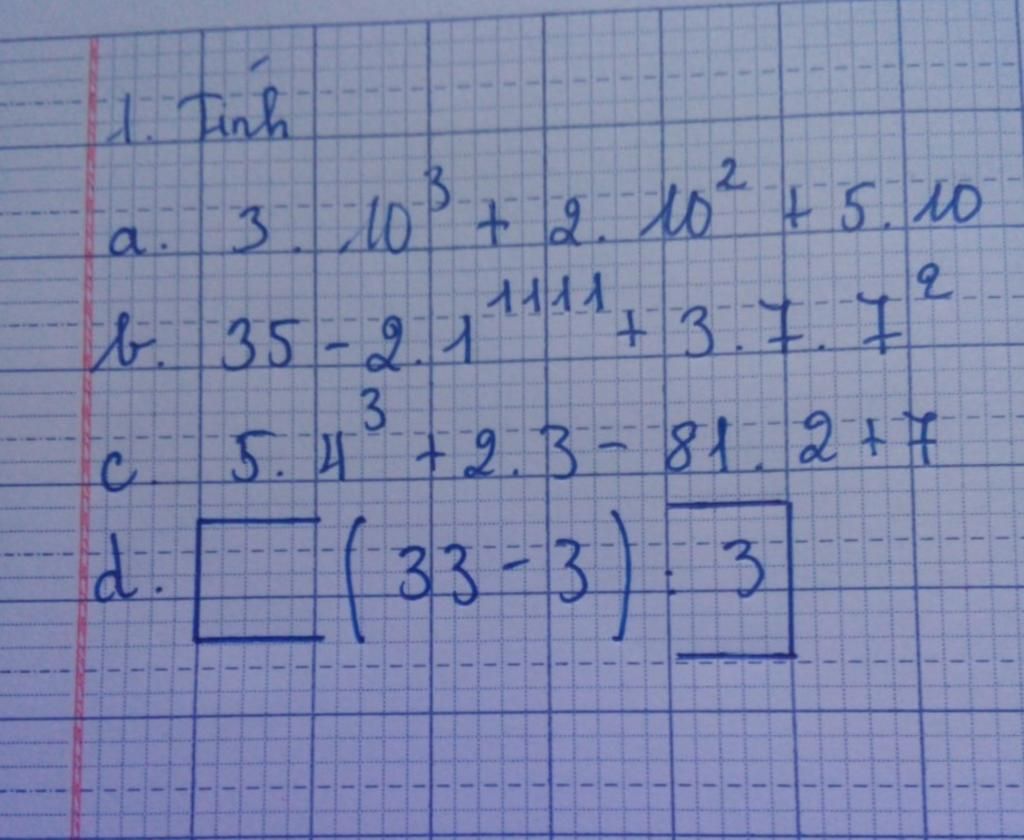 1. Tính
a. 3. 10³ + 2. 10² + 5. 10
b. 35 - 2. 1¹¹¹¹ + 3. 7. 7²
c. 5. 4³ + 2. 3 - 81. 2 + 7
d. [ (33 - 3) : 3 ]